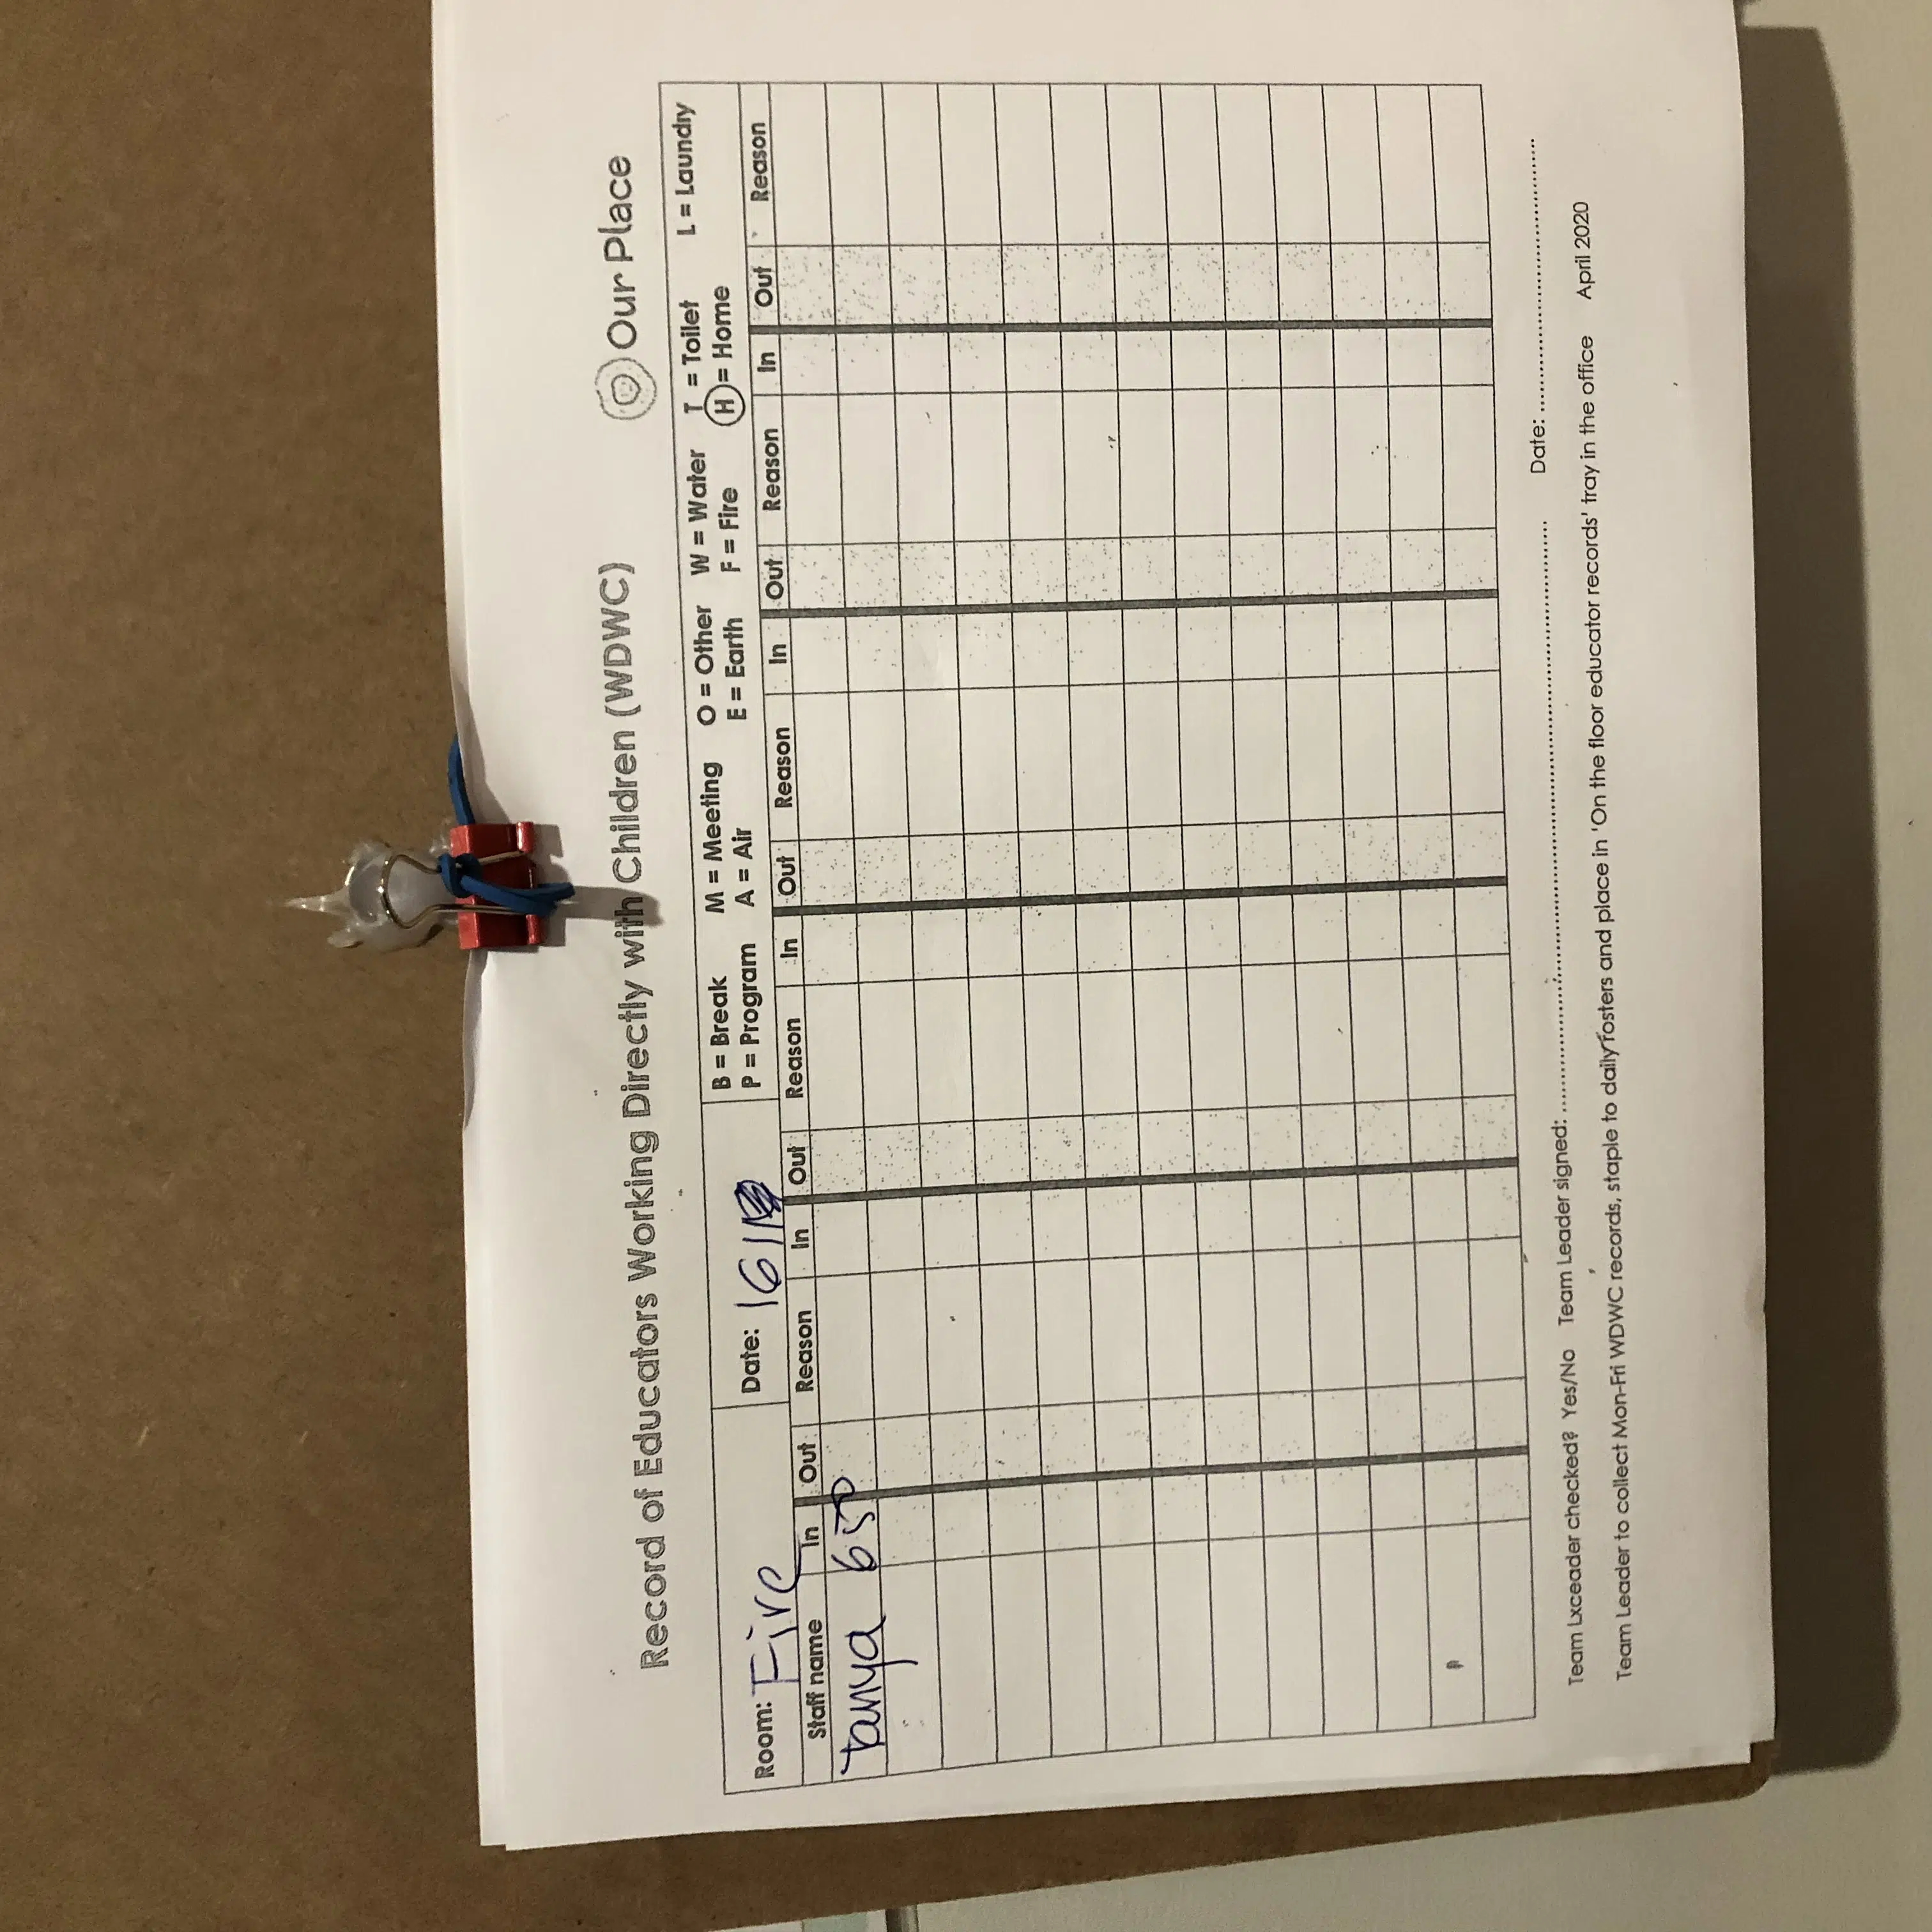 Record of Educators Working Directly with Children (WDWC) Our Place
Room: Fire Date: 16/1 B = Break M = Meeting O = Other W = Water T = Toilet L = Laundry
P = Program A = Air E = Earth F = Fire H = Home
Staff name In Out Reason In Out Reason In Out Reason In Out Reason In Out Reason In Out Reason
Tanya 650
Team Lxceader checked? Yes/No Team Leader signed: Date:
Team Leader to collect Mon-Fri WDWC records, staple to daily rosters and place in 'On the floor educator records' tray in the office April 2020